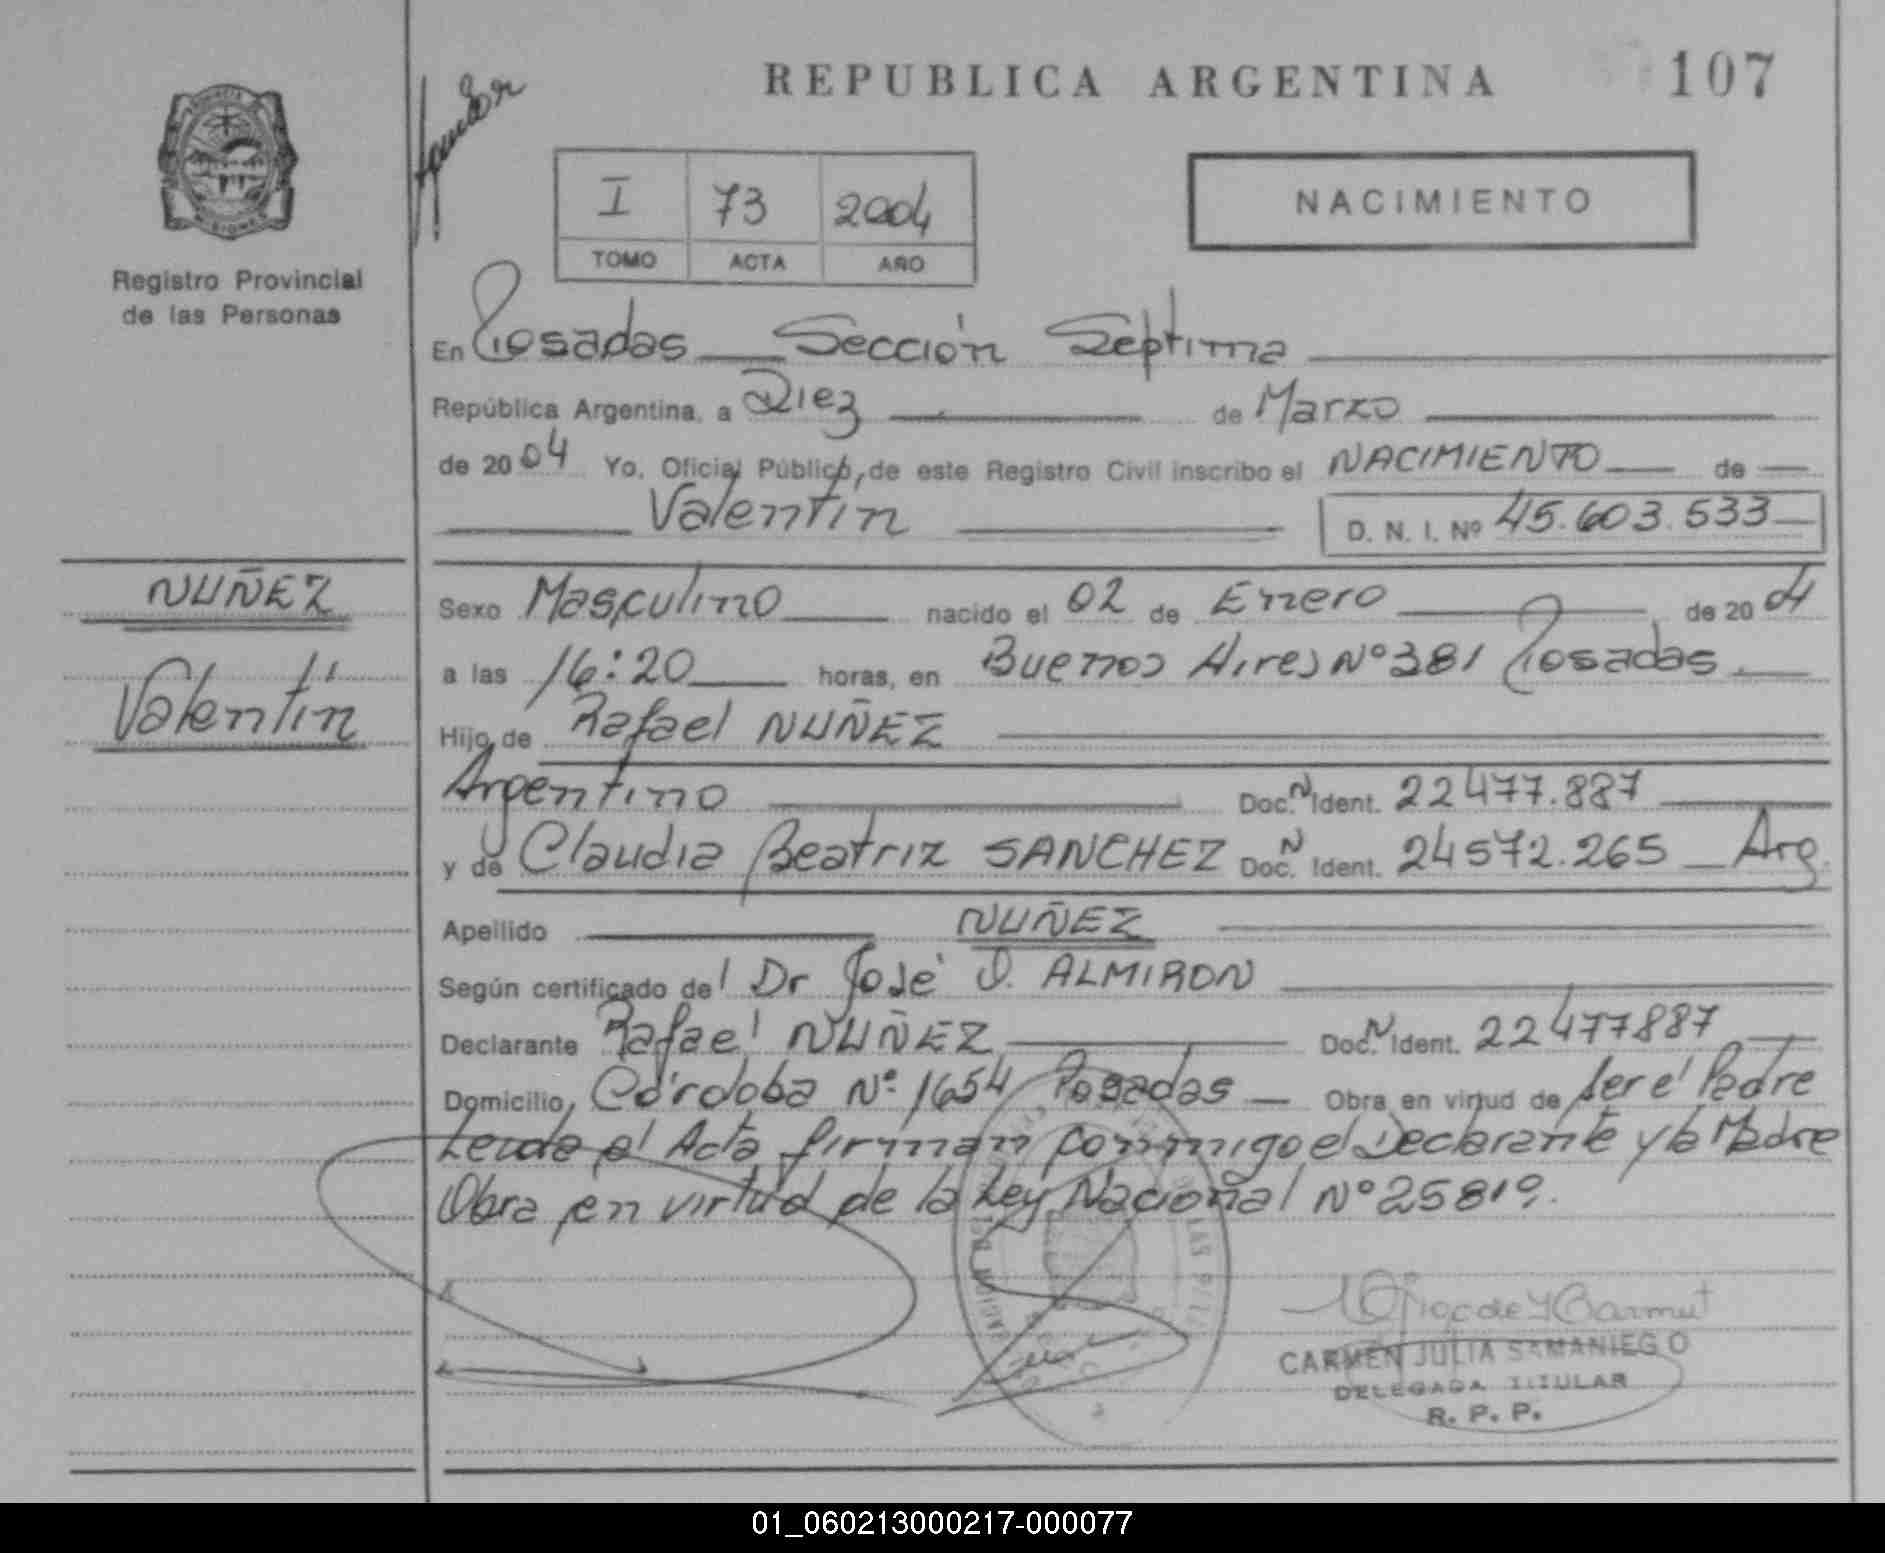 REPUBLICA ARGENTINA
107
Registro Provincial
de las Personas
I 73 2004
TOMO ACTA AÑO
NACIMIENTO
En Posadas Sección Septima
República Argentina, a Diez de Marzo
de 2004 Yo, Oficial Público, de este Registro Civil inscribo el NACIMIENTO de
Valentín D. N. I. Nº 45.603.533
NUÑEZ
Valentín
Sexo Masculino nacido el 02 de Enero de 2004
a las 16:20 horas, en Buenos Aires Nº 381 Posadas
Hijo de Rafael NUÑEZ
Argentino Doc. N Ident. 22477.887
y de Claudia Beatriz SANCHEZ Doc. N Ident. 24572.265 Arg.
Apellido NUÑEZ
Según certificado del Dr José O. ALMIRON
Declarante Rafael NUÑEZ Doc. N Ident. 22477887
Domicilio, Córdoba Nº 1654 Posadas Obra en virtud de ser el Padre
Leida el Acta firman conmigo el Declarante y la Madre
Obra en virtud de la Ley Nacional Nº 25819.
CARMEN JULIA SAMANIEGO
DELEGADA TITULAR
R. P. P.
01_060213000217-000077